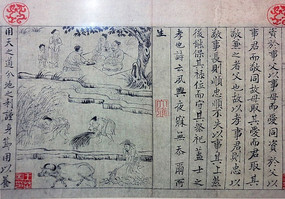 資於事父以事母而愛同資於事父以
事君而敬同故母取其愛而君取其
敬兼之者父也故以孝事君則忠以
敬事長則順忠順不失以事其上然
後能保其祿位而守其祭祀蓋士之
孝也詩云夙興夜寐無忝爾所
生
用天之道分地之利謹身節用以養